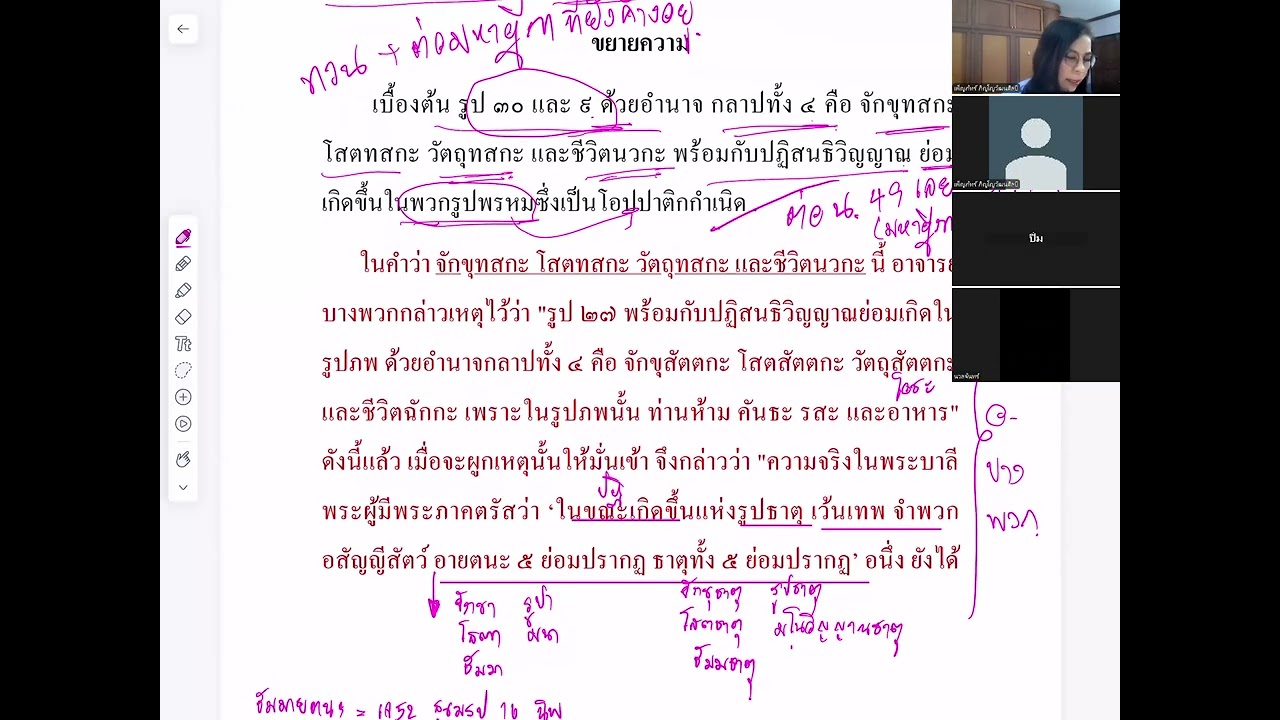 ทวน + ต่อมหาฎีกา ที่ยังค้างอยู่
ขยายความ
เบื้องต้น รูป ๓๐ และ ๙ ด้วยอำนาจ กลาปทั้ง ๔ คือ จักขุทสกะ
โสตทสกะ วัตถุทสกะ และชีวิตนวกะ พร้อมกับปฏิสนธิวิญญาณ ย่อม
เกิดขึ้นในพวกรูปพรหมซึ่งเป็นโอปปาติกกำเนิด
ต่อ น. 49 เลย
(มหาฎีกา
ในคำว่า จักขุทสกะ โสตทสกะ วัตถุทสกะ และชีวิตนวกะ นี้ อาจารย
บางพวกกล่าวเหตุไว้ว่า "รูป ๒๗ พร้อมกับปฏิสนธิวิญญาณย่อมเกิดใน
รูปภพ ด้วยอำนาจกลาปทั้ง ๔ คือ จักขุสัตตกะ โสตสัตตกะ วัตถุสัตตกะ
โอชะ
และชีวิตฉักกะ เพราะในรูปภพนั้น ท่านห้าม คันธะ รสะ และอาหาร"
ดังนี้แล้ว เมื่อจะผูกเหตุนั้นให้มั่นเข้า จึงกล่าวว่า "ความจริงในพระบาลี
ปฏิ
พระผู้มีพระภาคตรัสว่า 'ในขณะเกิดขึ้นแห่งรูปธาตุ เว้นเทพ จำพวก
อสัญญีสัตว์ อายตนะ ๕ ย่อมปรากฏ ธาตุทั้ง ๕ ย่อมปรากฏ' อนึ่ง ยังได้
อ-
บาง
พวก
จักขา รูปา
โสตา มนา
ธัมมา
จักขุธาตุ รูปธาตุ
โสตธาตุ มโนวิญญาณธาตุ
ธัมมธาตุ
ธัมมายตนะ = เจ52 สุขุมรูป 16 นิพ
เพ็ญภัทร์ ภิญโญวัฒนศิลป์
เพ็ญภัทร์ ภิญโญวัฒนศิลป์
ปิ่ม
นวลจันทร์
Tt